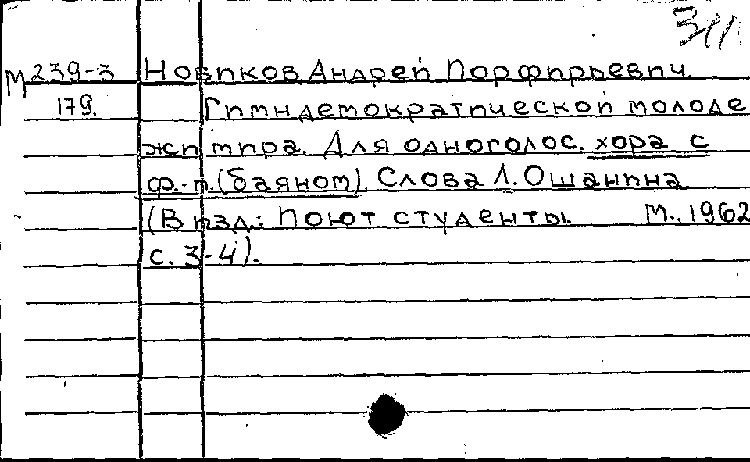 311
М 239-3 Новиков Андрей Порфирьевич.
179. Гимн демократической молоде
жи мира. Для одноголос. хора с
ф.-п. (баяном). Слова Л. Ошанина
(В изд.: Поют студенты. М., 1962
с. 3-4).